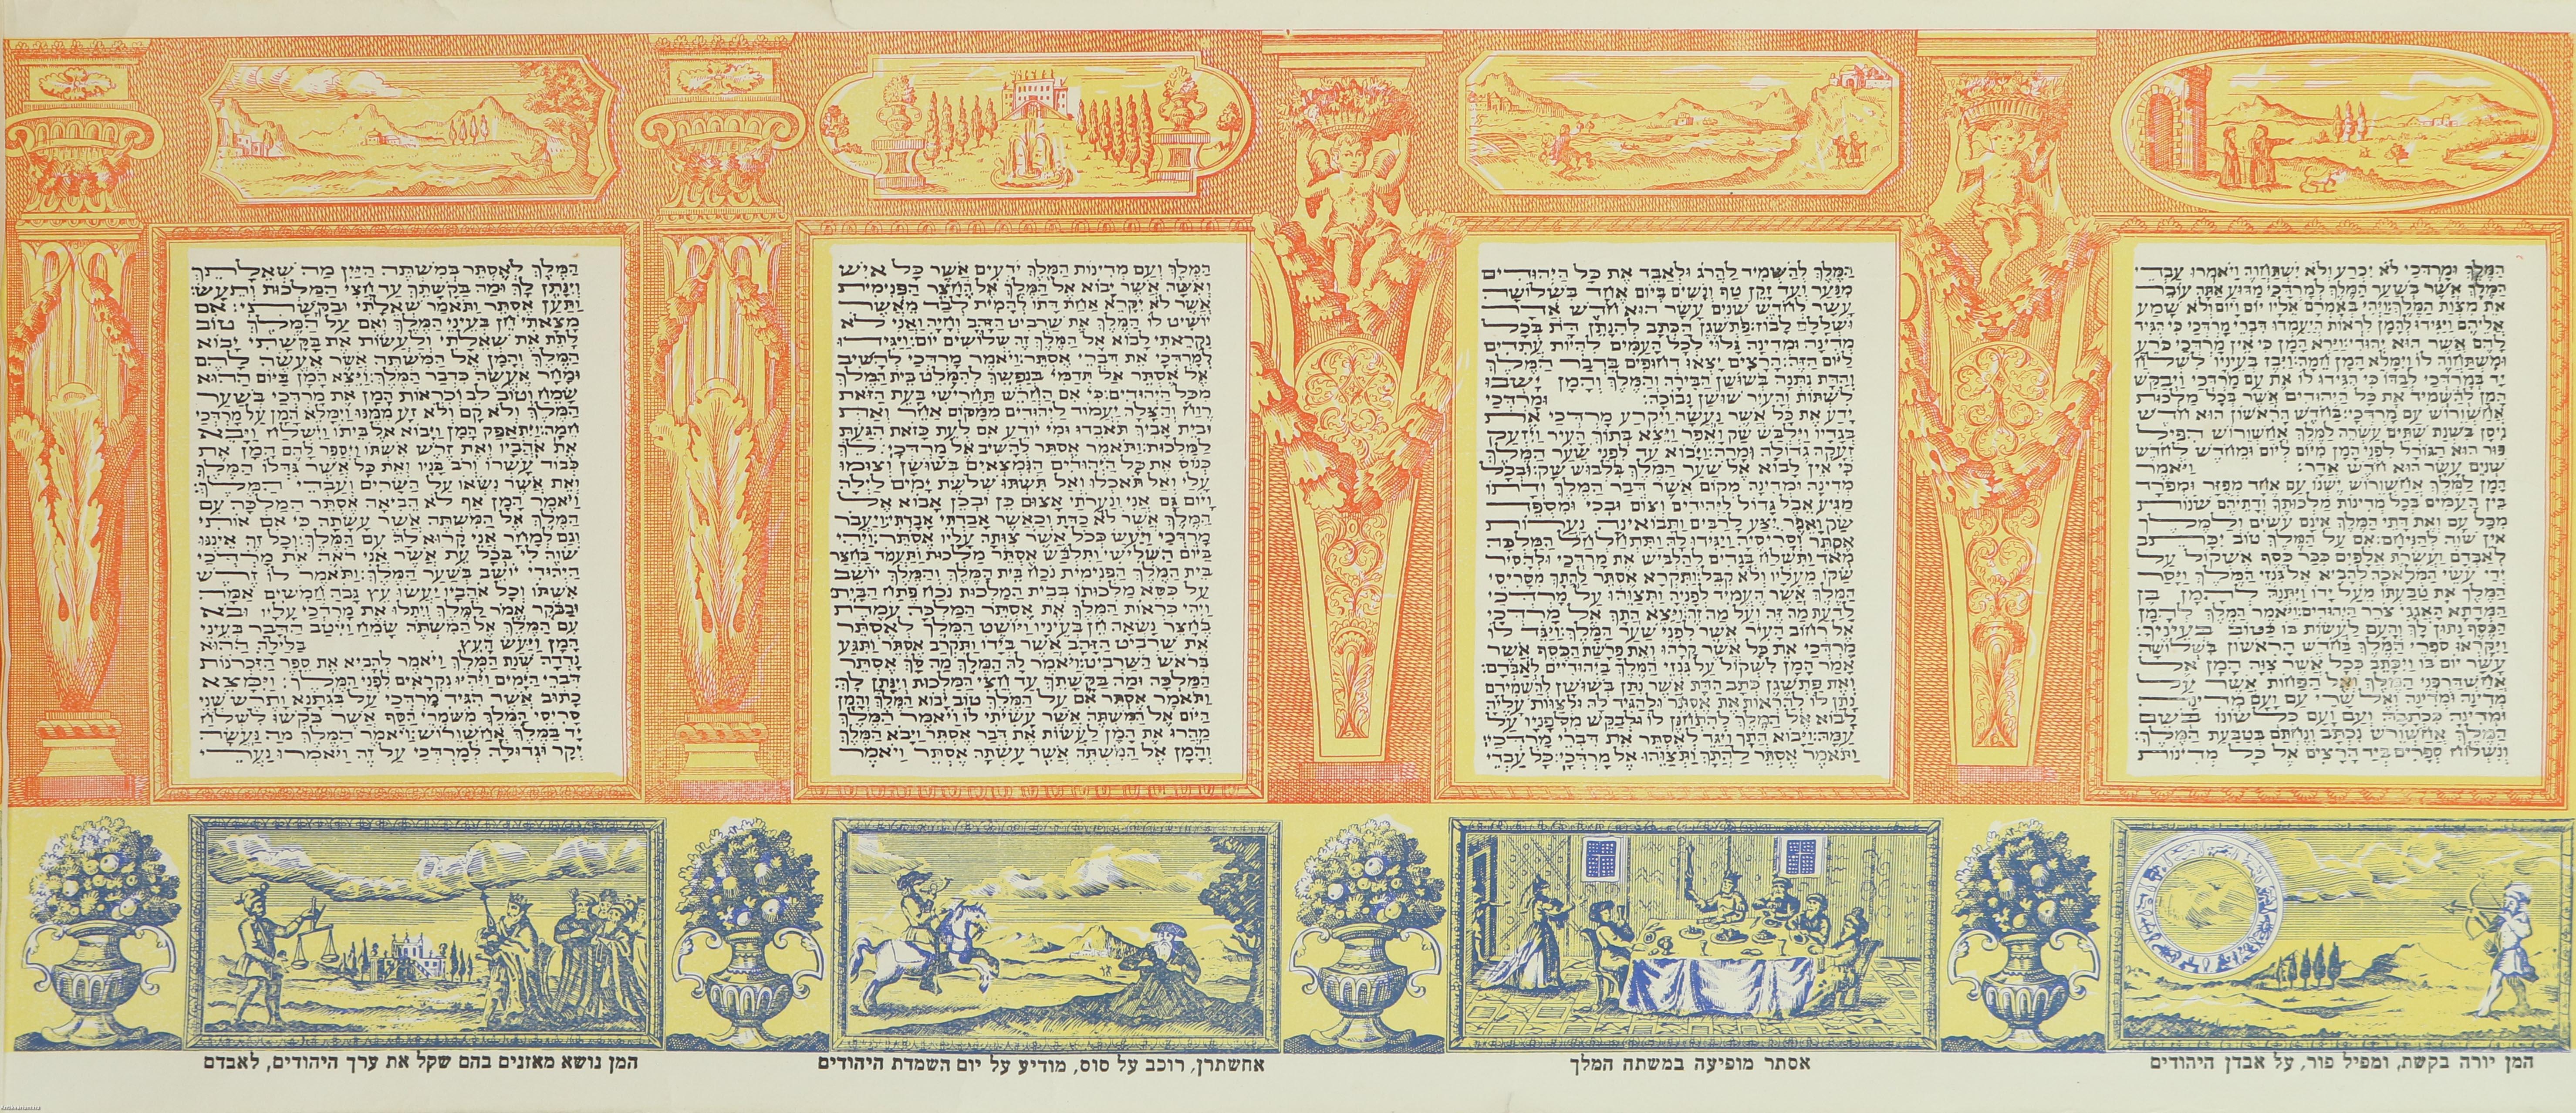 המלך ומרדכי לא יכרע ולא ישתחוה ויאמרו עבדי
המלך אשר בשער המלך למרדכי מדוע אתה עובר
את מצות המלך: ויהי באמרם אליו יום ויום ולא שמע
אליהם ויגידו להמן לראות היעמדו דברי מרדכי כי הגיד
להם אשר הוא יהודי: וירא המן כי אין מרדכי כרע
ומשתחוה לו וימלא המן חמה: ויבז בעיניו לשלח
יד במרדכי לבדו כי הגידו לו את עם מרדכי ויבקש
המן להשמיד את כל היהודים אשר בכל מלכות
אחשורוש עם מרדכי: בחדש הראשון הוא חדש
ניסן בשנת שתים עשרה למלך אחשורוש הפיל
פור הוא הגורל לפני המן מיום ליום ומחדש לחדש
שנים עשר הוא חדש אדר: ויאמר
המן למלך אחשורוש ישנו עם אחד מפזר ומפרד
בין העמים בכל מדינות מלכותך ודתיהם שונות
מכל עם ואת דתי המלך אינם עשים ולמלך
אין שוה להניחם: אם על המלך טוב יכתב
לאבדם ועשרת אלפים ככר כסף אשקול על
ידי עשי המלאכה להביא אל גנזי המלך: ויסר
המלך את טבעתו מעל ידו ויתנה להמן בן
המדתא האגגי צרר היהודים: ויאמר המלך להמן
הכסף נתון לך והעם לעשות בו כטוב בעיניך:
ויקראו ספרי המלך בחדש הראשון בשלושה
עשר יום בו ויכתב ככל אשר צוה המן אל
אחשדרפני המלך ואל הפחות אשר על
מדינה ומדינה ואל שרי עם ועם מדינה
ומדינה ככתבה ועם ועם כלשונו בשם
המלך אחשורש נכתב ונחתם בטבעת המלך:
ונשלוח ספרים ביד הרצים אל כל מדינות
המלך להשמיד להרג ולאבד את כל היהודים
מנער ועד זקן טף ונשים ביום אחד בשלושה
עשר לחדש שנים עשר הוא חדש אדר
ושללם לבוז: פתשגן הכתב להנתן דת בכל
מדינה ומדינה גלוי לכל העמים להיות עתדים
ליום הזה: הרצים יצאו דחופים בדבר המלך
והדת נתנה בשושן הבירה והמלך והמן ישבו
לשתות והעיר שושן נבוכה: ומרדכי
ידע את כל אשר נעשה ויקרע מרדכי את
בגדיו וילבש שק ואפר ויצא בתוך העיר ויזעק
זעקה גדולה ומרה: ויבוא עד לפני שער המלך
כי אין לבוא אל שער המלך בלבוש שק: ובכל
מדינה ומדינה מקום אשר דבר המלך ודתו
מגיע אבל גדול ליהודים וצום ובכי ומספד
שק ואפר יצע לרבים: ותבואינה נערות
אסתר וסריסיה ויגידו לה ותתחלחל המלכה
מאד ותשלח בגדים להלביש את מרדכי ולהסיר
שקו מעליו ולא קבל: ותקרא אסתר להתך מסריסי
המלך אשר העמיד לפניה ותצוהו על מרדכי
לדעת מה זה ועל מה זה: ויצא התך אל מרדכי
אל רחוב העיר אשר לפני שער המלך: ויגד לו
מרדכי את כל אשר קרהו ואת פרשת הכסף אשר
אמר המן לשקול על גנזי המלך ביהודיים לאבדם:
ואת פתשגן כתב הדת אשר נתן בשושן להשמידם
נתן לו להראות את אסתר ולהגיד לה ולצוות עליה
לבוא אל המלך להתחנן לו ולבקש מלפניו על
עמה: ויבוא התך ויגד לאסתר את דברי מרדכי:
ותאמר אסתר להתך ותצוהו אל מרדכי: כל עבדי
המלך ועם מדינות המלך ידעים אשר כל איש
ואשה אשר יבוא אל המלך אל החצר הפנימית
אשר לא יקרא אחת דתו להמית לבד מאשר
יושיט לו המלך את שרביט הזהב וחיה ואני לא
נקראתי לבוא אל המלך זה שלושים יום: ויגידו
למרדכי את דברי אסתר: ויאמר מרדכי להשיב
אל אסתר אל תדמי בנפשך להמלט בית המלך
מכל היהודים: כי אם החרש תחרישי בעת הזאת
רוח והצלה יעמוד ליהודים ממקום אחר ואת
ובית אביך תאבדו ומי יודע אם לעת כזאת הגעת
למלכות: ותאמר אסתר להשיב אל מרדכי: לך
כנוס את כל היהודים הנמצאים בשושן וצומו
עלי ואל תאכלו ואל תשתו שלשת ימים לילה
ויום גם אני ונערתי אצום כן ובכן אבוא אל
המלך אשר לא כדת וכאשר אבדתי אבדתי: ויעבר
מרדכי ויעש ככל אשר צותה עליו אסתר: ויהי
ביום השלישי ותלבש אסתר מלכות ותעמד בחצר
בית המלך הפנימית נכח בית המלך והמלך יושב
על כסא מלכותו בבית המלכות נכח פתח הבית:
ויהי כראות המלך את אסתר המלכה עמדת
בחצר נשאה חן בעיניו ויושט המלך לאסתר
את שרביט הזהב אשר בידו ותקרב אסתר ותגע
בראש השרביט: ויאמר לה המלך מה לך אסתר
המלכה ומה בקשתך עד חצי המלכות וינתן לך:
ותאמר אסתר אם על המלך טוב יבוא המלך והמן
היום אל המשתה אשר עשיתי לו: ויאמר המלך
מהרו את המן לעשות את דבר אסתר ויבא המלך
והמן אל המשתה אשר עשתה אסתר: ויאמר
המלך לאסתר במשתה היין מה שאלתך
וינתן לך ומה בקשתך עד חצי המלכות ותעש:
ותען אסתר ותאמר שאלתי ובקשתי: אם
מצאתי חן בעיני המלך ואם על המלך טוב
לתת את שאלתי ולעשות את בקשתי יבוא
המלך והמן אל המשתה אשר אעשה להם
ומחר אעשה כדבר המלך: ויצא המן ביום ההוא
שמח וטוב לב וכראות המן את מרדכי בשער
המלך ולא קם ולא זע ממנו וימלא המן על מרדכי
חמה: ויתאפק המן ויבוא אל ביתו וישלח ויבא
את אהביו ואת זרש אשתו: ויספר להם המן את
כבוד עשרו ורב בניו ואת כל אשר גדלו המלך
ואת אשר נשאו על השרים ועבדי המלך:
ויאמר המן אף לא הביאה אסתר המלכה עם
המלך אל המשתה אשר עשתה כי אם אותי
וגם למחר אני קרוא לה עם המלך: וכל זה איננו
שוה לי בכל עת אשר אני ראה את מרדכי
היהודי יושב בשער המלך: ותאמר לו זרש
אשתו וכל אהביו יעשו עץ גבה חמשים אמה
ובבקר אמר למלך ויתלו את מרדכי עליו ובא
עם המלך אל המשתה שמח וייטב הדבר בעיני
המן ויעש העץ: בלילה ההוא
נדדה שנת המלך ויאמר להביא את ספר הזכרנות
דברי הימים ויהיו נקראים לפני המלך: וימצא
כתוב אשר הגיד מרדכי על בגתנא ותרש שני
סריסי המלך משמרי הסף אשר בקשו לשלח
יד במלך אחשורוש: ויאמר המלך מה נעשה
יקר וגדולה למרדכי על זה ויאמרו נערי
המן יורה בקשת, ומפיל פור, על אבדן היהודים
אסתר מופיעה במשתה המלך
אחשתרן, רוכב על סוס, מודיע על יום השמדת היהודים
המן נושא מאזנים בהם שקל את ערך היהודים, לאבדם